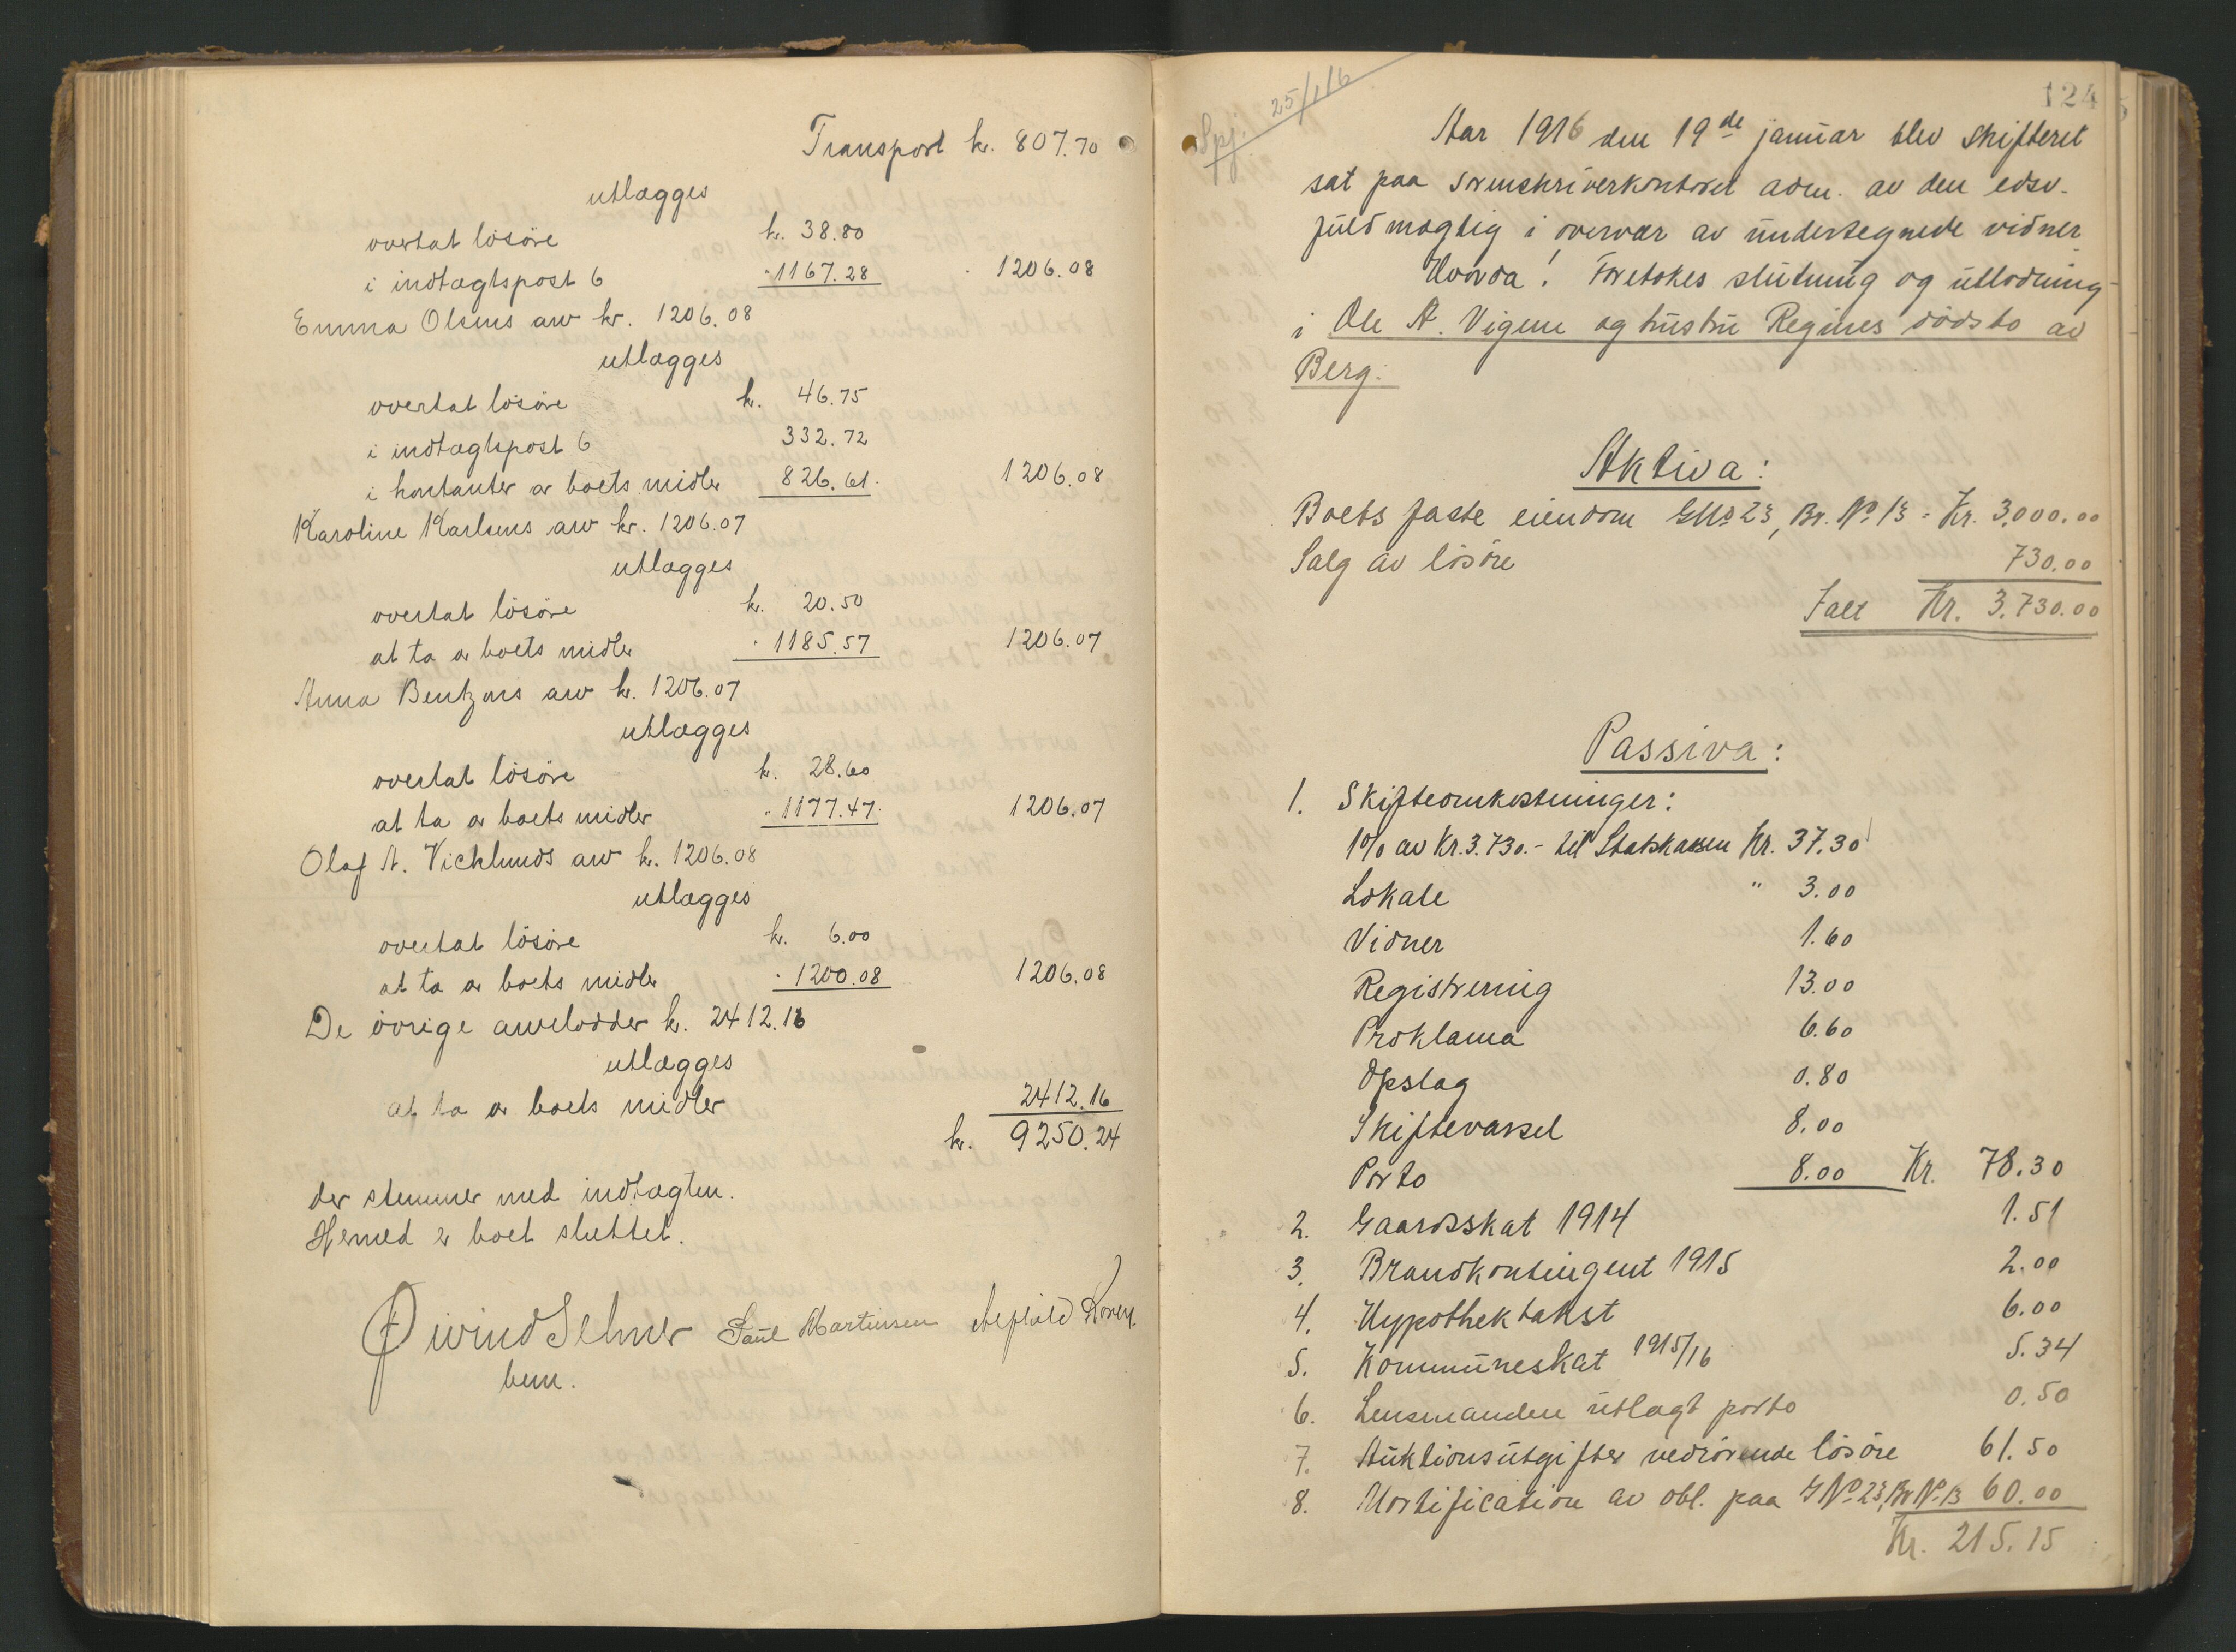 Transport kr. 807.70
utlægges
overtat lösöre kr. 38.80
i indtægtspost 6 " 1167.28 " 1206.08
Emma Olsens arv kr. 1206.08
utlægges
overtat lösöre kr. 46.75
i indtægtspost 6 332.72
i kontanter av boets midler 826.61 1206.08
Karoline Karlsens arv kr. 1206.07
utlægges
overtat lösöre kr. 20.50
at ta av boets midler " 1185.57 1206.07
Anna Bentzens arv kr. 1206.07
utlægges
overtat lösöre kr. 28.60
at ta av boets midler " 1177.47 1206.07
Olaf A. Vicklunds arv kr. 1206.08
utlægges
overtat lösöre kr. 6.00
at ta av boets midler " 1200.08 1206.08
De övrige arvelodder kr. 2412.16
utlægges
at ta av boets midler 2412.16
kr. 9250.24
der stemmer med indtægten.
Hermed er boet sluttet.
Øivind Selmer Paul Martinsen
bem.
124
Spj. 25/1 16
Aar 1916 den 19de januar blev skifteret
sat paa sorenskriverkontoret adm. av den edsv.
fuldmægtig i overvær av undertegnede vidner
Hvorda! Foretokes slutning og utlodning
i Ole A. Vigene og hustru Regines dödsbo av
Berg.
Aktiva:
Boets faste eiendom GNo 23, Br. No. 13 = Kr. 3,000.00
Salg av lösöre 730.00
Ialt Kr. 3.730.00
Passiva:
1. Skifteomkostninger:
1% av Kr. 3.730.- til Statskassen Kr. 37.30
Lokale " 3.00
Vidner 1.60
Registrering 13.00
Proklama 6.60
Opslag 0.80
Skiftevarsel 8.00
Porto 8.00 Kr. 78.30
2. Gaardsskat 1914 1.51
3. Brandkontingent 1915 2.00
4. Hypothektakst 6.00
5. Kommuneskat 1915/16 5.34
6. Lensmanden utlagt porto 0.50
7. Auktionsutgifter vedrörende lösöre 61.50
8. Mortification av obl. paa GNo. 23, Br No. 13 60.00
Kr. 215.15